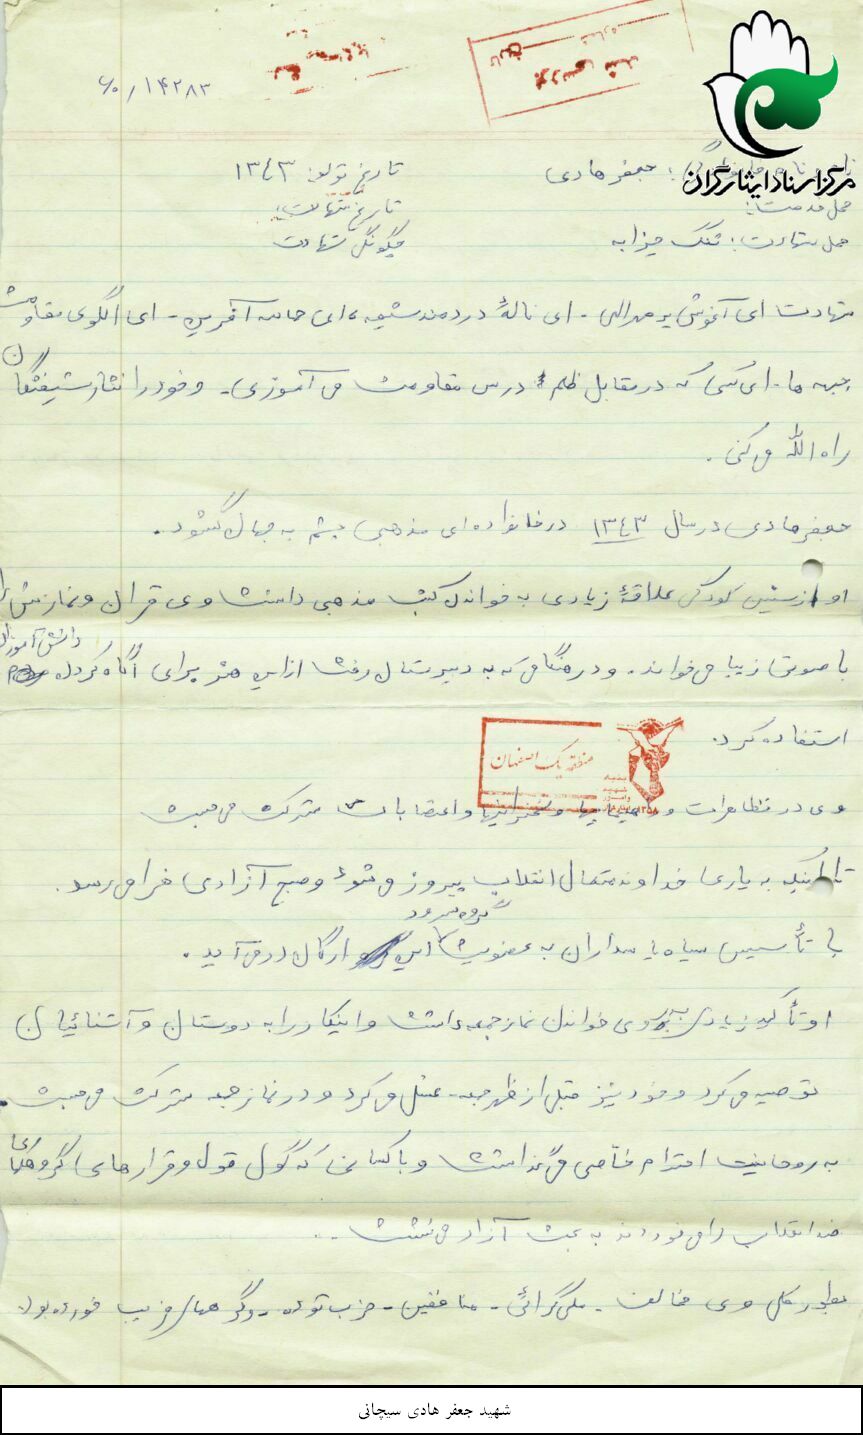 ۶۰/۱۴۲۸۳
بررسی شد
مرکز اسناد ایثارگران
جعفر هادی
تاریخ تولد: ۱۳۴۳
محل خدمت:
تاریخ شهادت:
محل شهادت: تنگ چزابه
چگونگی شهادت
شهادت ای آغوش پر مهر الهی - ای نالهٔ دردمند شیعه، ای حماسه آفرین - ای الگوی مقاومت
جبهه ها - ای کسی که در مقابل ظلم درس مقاومت می آموزی - و خود را نثار شیفتگان
راه الله می کنی.
جعفر هادی در سال ۱۳۴۳ در خانواده ای مذهبی چشم به جهان گشود.
او از سنین کودکی علاقهٔ زیادی به خواندن کتب مذهبی داشت وی قرآن و نمازش را
با صوتی زیبا می خواند. و در هنگامی که به دبیرستان رفت از این هنر برای آگاه کردن دانش آموزان
استفاده کرد.
منطقه یک اصفهان
وی در تظاهرات و راهپیمایها و سخنرانیها و اعتصابات شرکت می جست
تا اینکه به یاری خداوند متعال انقلاب پیروز می شود و صبح آزادی فرا می رسد.
با تأسیس سپاه پاسداران به عضویت گروه سرود این ارگان در می آید.
او تأکید زیادی به روی خواندن نماز جمعه داشت و اینکار را به دوستان و آشنائیان
توصیه می کرد و خود نیز قبل از ظهر جمعه - غسل می کرد و در نماز جمعه شرکت می جست.
به روحانیت احترام خاصی می گذاشت و با کسانی که گول قول و قرارهای گروهکهای
ضد انقلاب را می خوردند به بحث آزاد می نشست..
بطور کلی وی مخالف - ملی گرائی - منافقین - حزب توده - و گروههای فریب خورده بود.
شهید جعفر هادی سیچانی